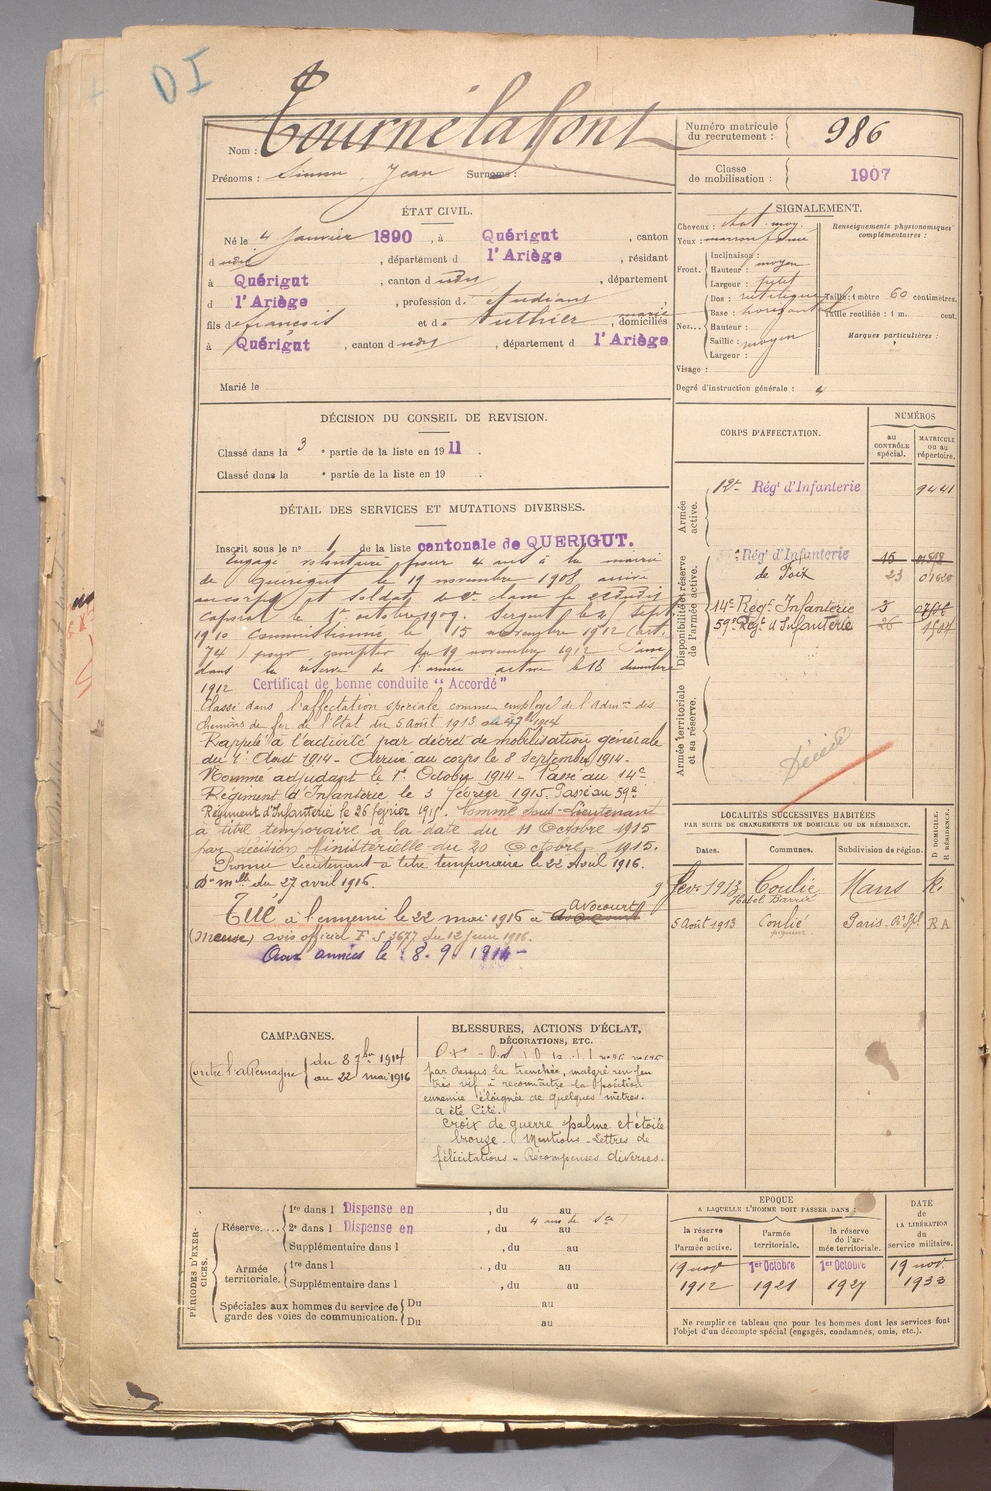 DI
Nom : Tournélafont
Prénoms : Simon Jean Surnoms :
Numéro matricule du recrutement : 986
Classe de mobilisation : 1907
ÉTAT CIVIL.
Né le 4 Janvier 1890, à Quérigut, canton
d udit, département d l'Ariège, résidant
à Quérigut, canton d udit, département
d l'Ariège, profession d étudiant,
fils de françois et de Authier marie, domiciliés
à Quérigut, canton d udit, département d l'Ariège
Marié le
SIGNALEMENT.
Cheveux : chat. moy.
Yeux : marron
Front.
Inclinaison :
Hauteur : moyen
Largeur : petit
Nez...
Dos : rectiligne
Base : horizontale
Hauteur :
Saillie : moyen
Largeur :
Visage :
Renseignements physionomiques complémentaires :
Taille : 1 mètre 60 centimètres.
Taille rectifiée : 1 m. cent.
Marques particulières :
Degré d'instruction générale : 4
DÉCISION DU CONSEIL DE REVISION.
Classé dans la 3 e partie de la liste en 1911.
Classé dans la e partie de la liste en 19
DÉTAIL DES SERVICES ET MUTATIONS DIVERSES.
Inscrit sous le n° 1 de la liste cantonale de QUERIGUT.
Engagé volontaire pour 4 ans à la mairie
de Quérigut le 19 novembre 1908 arrivé
au corps et soldat de 2e classe le
caporal le 1er octobre 1909. Sergent le 21 Sept
1910 Commissionné le 15 novembre 1912 (art.
74) pour compter du 19 novembre 1912 Passé
dans la réserve de l'armée active le 18 décembre
1912 Certificat de bonne conduite "Accordé"
Classé dans l'affectation spéciale comme employé de l'Admon des
chemins de fer de l'Etat du 5 Août 1913 au 1914
Rappelé à l'activité par décret de mobilisation générale
du 1er Août 1914 - Arrivé au corps le 8 septembre 1914 -
Nommé adjudant le 1er Octobre 1914 - Passé au 14e
Régiment d'Infanterie le 3 février 1915. Passé au 59e
Régiment d'Infanterie le 26 février 1915. Nommé sous-Lieutenant
à titre temporaire à la date du 11 Octobre 1915
par décision ministérielle du 20 Octobre 1915.
Promu Lieutenant à titre temporaire le 22 Avril 1916.
Don mlle du 27 avril 1916.
Tué à l'ennemi le 22 mai 1916 à Avocourt
(Meuse) avis officiel F S 3677 du 12 juin 1916.
Aux armées le : 8. 9. 1914 -
CORPS D'AFFECTATION.
NUMÉROS
au CONTRÔLE spécial.
MATRICULE ou au répertoire.
Armée active.
12e Régt d'Infanterie 9441
Disponibilité et réserve de l'armée active.
Régt d'Infanterie 15
de Foix 23 01620
14e Régt Infanterie 3
59e Régt d'Infanterie 26
Armée territoriale et sa réserve.
Décédé
LOCALITÉS SUCCESSIVES HABITÉES
PAR SUITE DE CHANGEMENTS DE DOMICILE OU DE RÉSIDENCE.
Dates. Communes. Subdivision de région. D DOMICILE. R RÉSIDENCE.
9 févr 1913 Conlie Mans R.
Hôtel Barrier
5 Août 1913 Conlié Paris RA
CAMPAGNES.
Contre l'allemagne
du 8 7bre 1914
au 22 mai 1916
BLESSURES, ACTIONS D'ÉCLAT,
DÉCORATIONS, ETC.
par dessus la tranchée, malgré un feu
très vif à reconnaître la position
ennemie éloignée de quelques mètres.
a été Cité.
Croix de guerre palme et étoile
bronze. Mentions - Lettres de
félicitations - Récompenses diverses.
PÉRIODES D'EXERCICES.
Réserve....
1re dans l Dispense en , du au
2e dans l Dispense en , du au
4 ans de Sce
Supplémentaire dans l , du au
Armée territoriale.
1re dans l , du au
Supplémentaire dans l , du au
Spéciales aux hommes du service de garde des voies de communication.
Du au
Du au
EPOQUE
A LAQUELLE L'HOMME DOIT PASSER DANS :
la réserve de l'armée active.
l'armée territoriale.
la réserve de l'armée territoriale.
DATE de LA LIBÉRATION du service militaire.
19 nov 1912
1er Octobre 1921
1er Octobre 1927
19 nov. 1933
Ne remplir ce tableau que pour les hommes dont les services font
l'objet d'un décompte spécial (engagés, condamnés, omis, etc.).